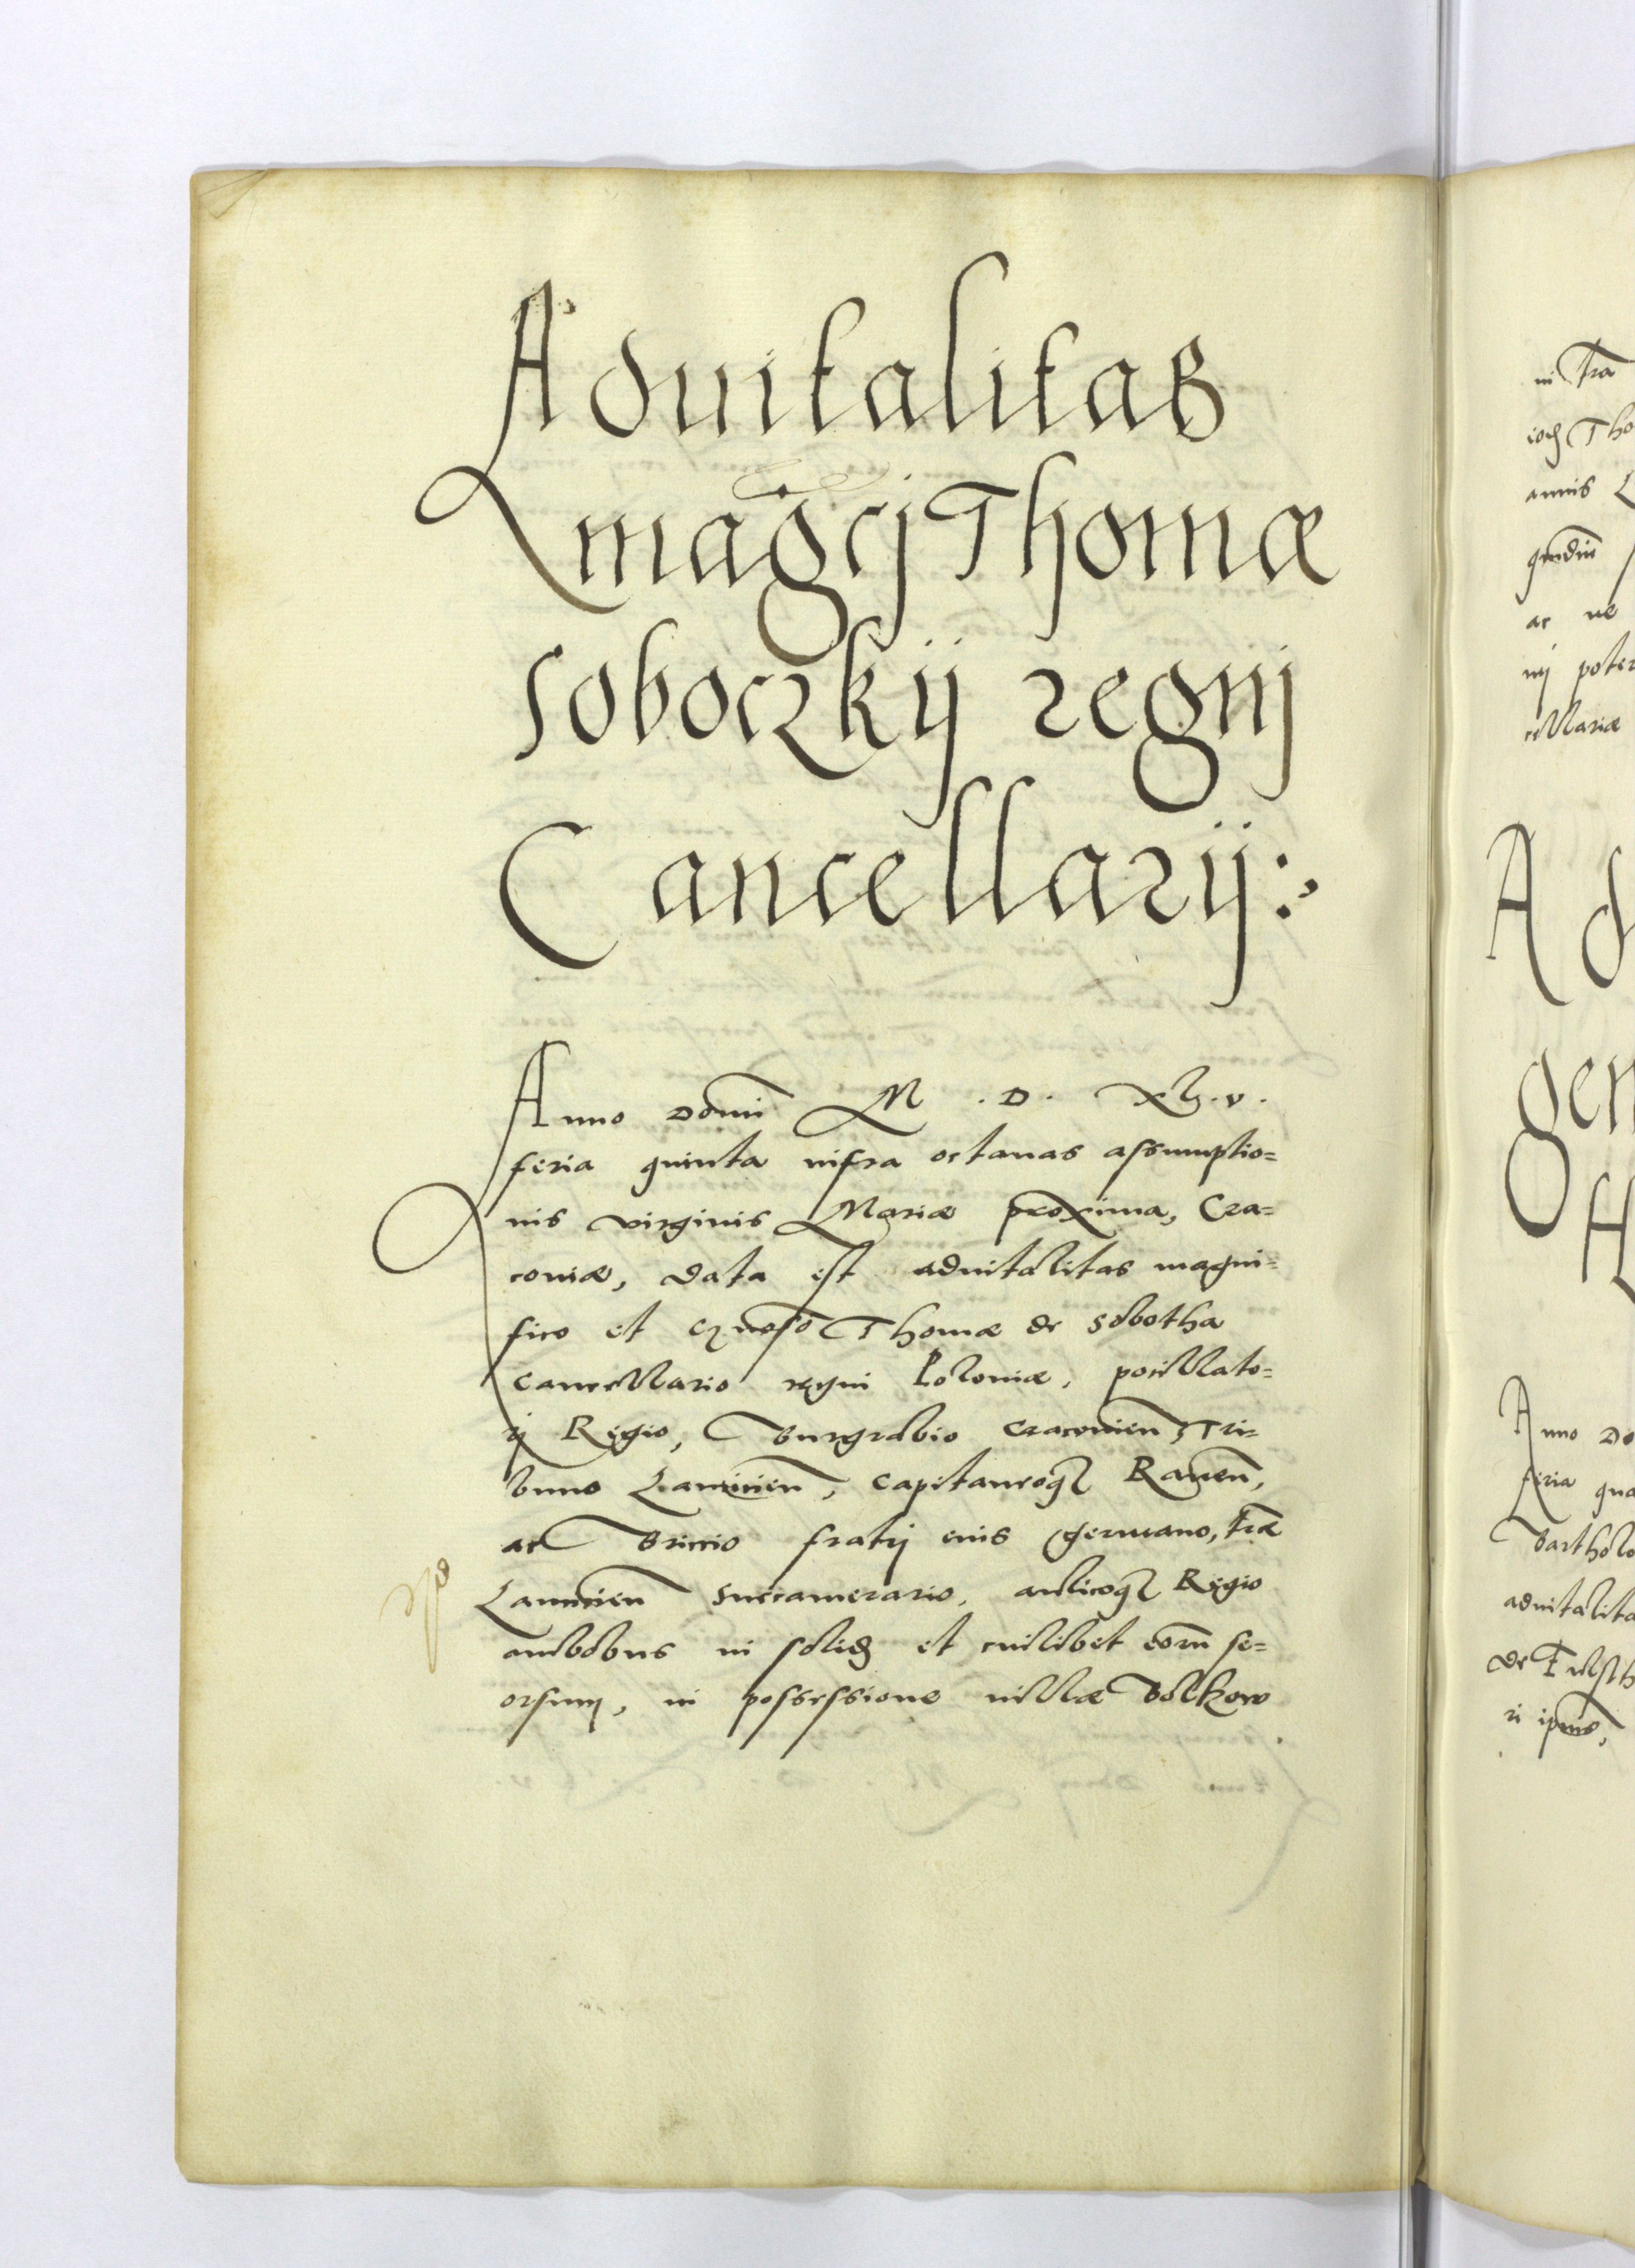 Aduitalitas
magcj Thomæ
Soboczkij regnj
Cancellarij:
Anno Domi M . D . XL . v .
feria quinta infra octauas assumptio=
nis virginis Mariæ proxima, Cra=
couiæ, data est aduitalitas magni=
fico et Thomæ de Sobotha
Cancellario regni Poloniæ, pocillato=
rj Regio, Burgrabio Cracouien, Tri=
buno Lancicien, Capitaneoq Rauen,
ac Briccio fratrj eius germano, træ
Lancicien Succamerario, aulicoq Regio
ambobus in solid et cuilibet eorum se=
orsum, in possessione uillæ Bolkow
in tra
Tho
annis
ac ne
nij poter
cellariæ
Ad
gen
H
Anno Do
feria qua
Bartholo
aduitalita
De
ri ipius,